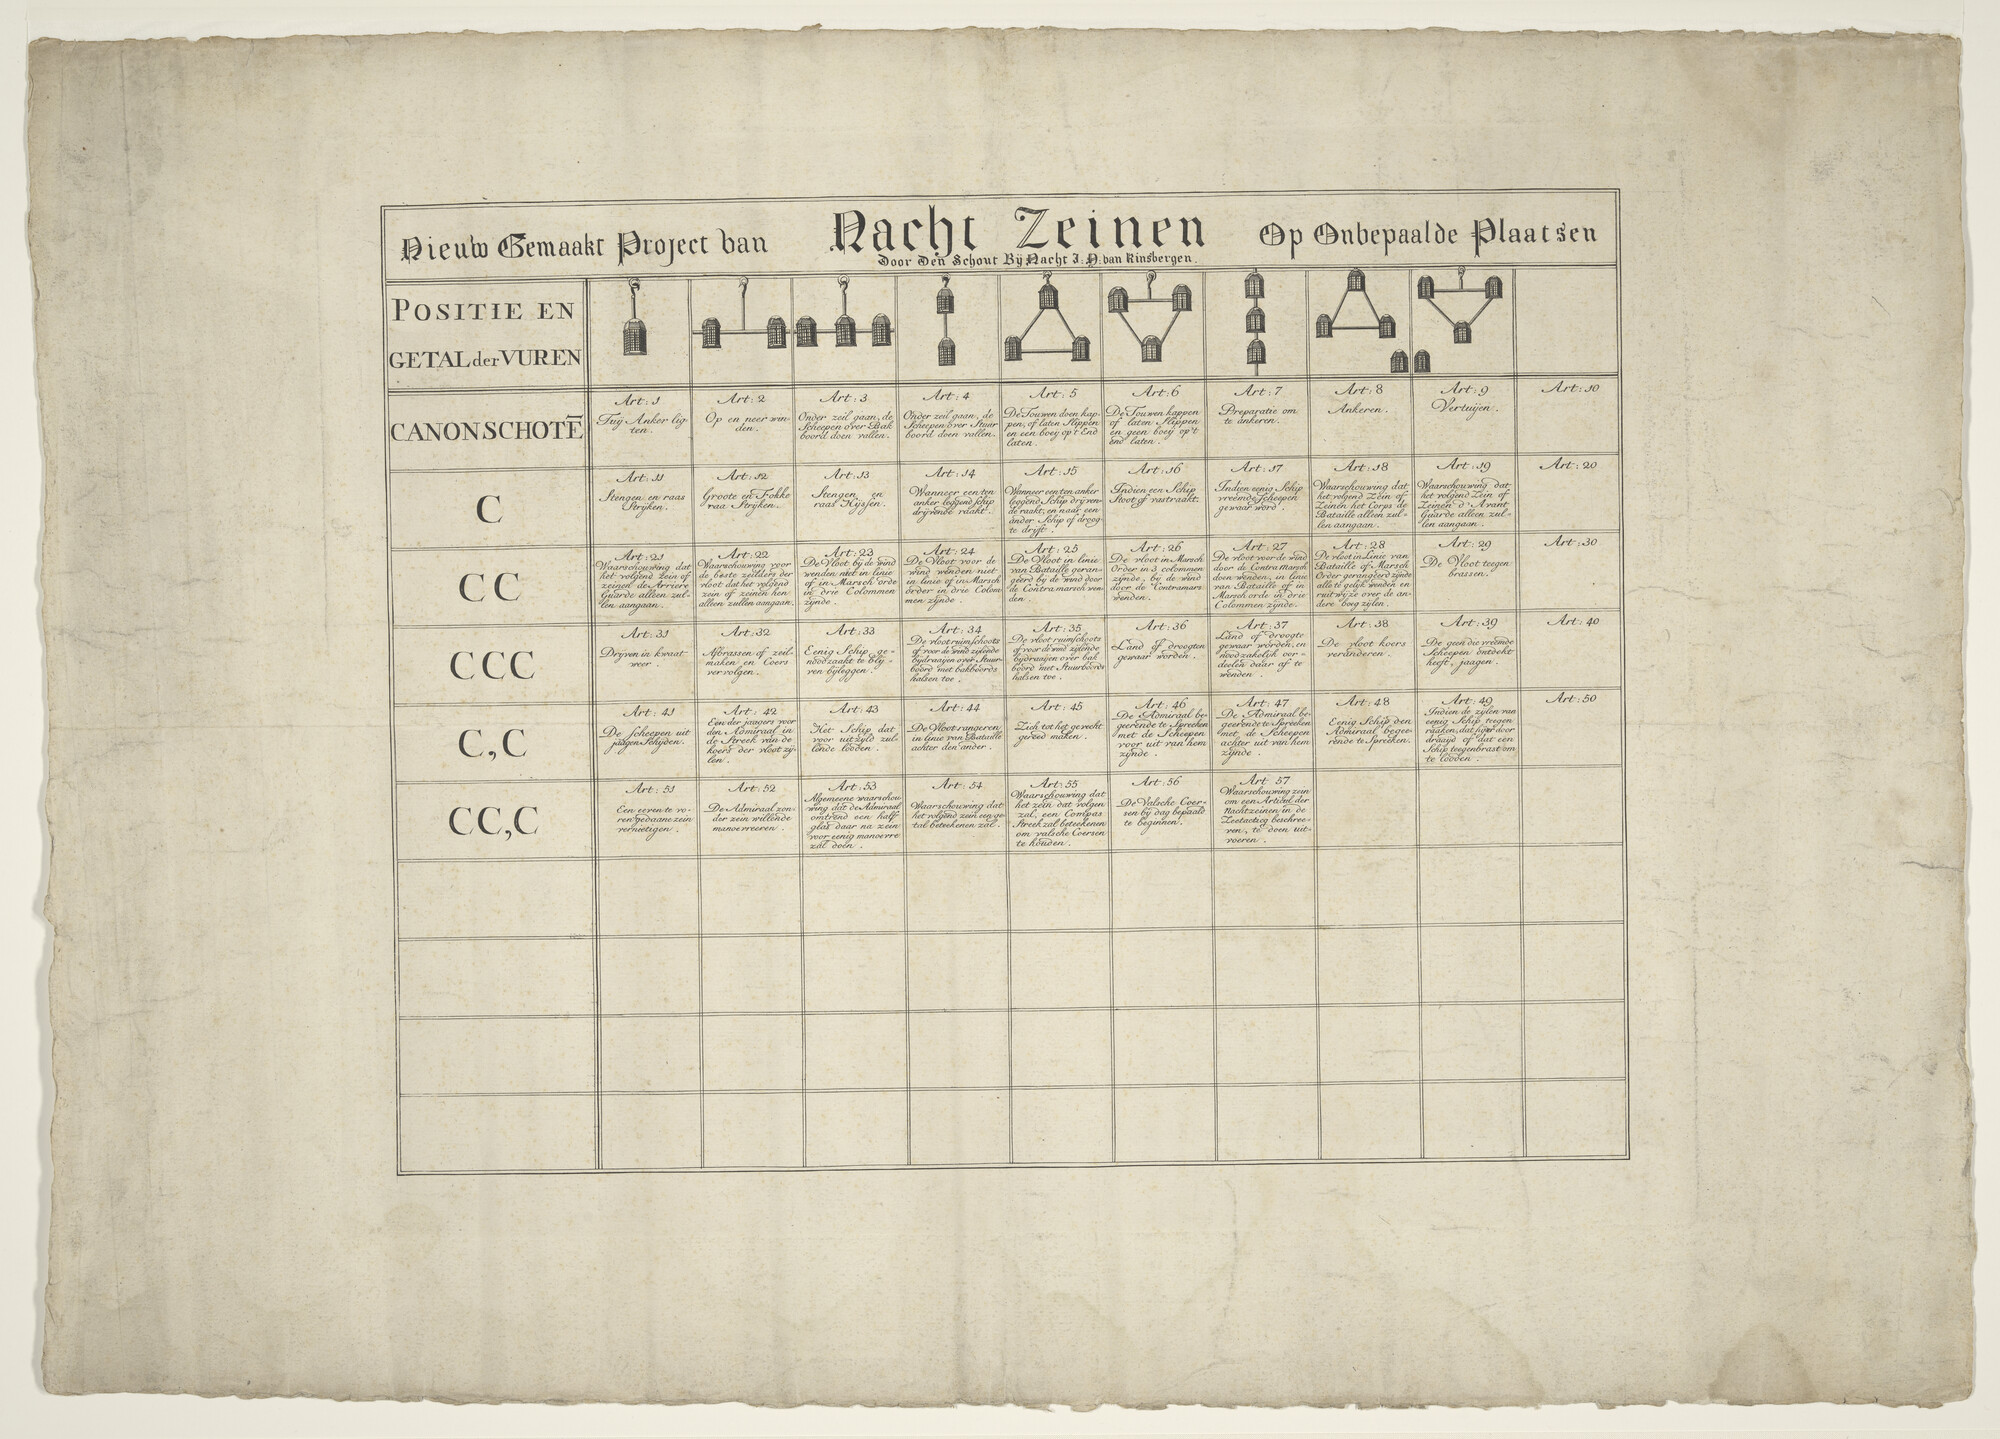 Nieuw Gemaakt Project van Nacht Zeinen Op Onbepaalde Plaatsen
Door Den Schout Bij Nacht J: H: van Kinsbergen.
POSITIE EN
GETAL der VUREN
CANONSCHOTE̅
Art: 1
Tuij Anker lig
ten.
Art: 2
Op en neer win
den.
Art: 3
Onder zeil gaan, de
Scheepen over Bak
boord doen vallen.
Art: 4
Onder zeil gaan, de
Scheepen over Stuur
boord doen vallen.
Art: 5
De Touwen doen kap-
pen, of laten Slippen
en een boey op't End
laten.
Art: 6
De Touwen kappen
of laten Slippen
en geen boey op't
end laten.
Art: 7
Preparatie om
te ankeren.
Art: 8
Ankeren.
Art: 9
Vertuijen.
Art: 10
C
Art: 11
Stengen en raas
Strijken.
Art: 12
Groote en Fokke
raa Strijken.
Art: 13
Stengen en
raas Hijssen.
Art: 14
Wanneer een ten
anker leggend schip
drijvende raakt.
Art: 15
Wanneer een ten anker
leggend Schip drijven-
de raakt, en naar een
ander Schip of droog-
te drijft.
Art: 16
Indien een Schip
Stoot of vast raakt.
Art: 17
Indien eenig Schip
vreemde Scheepen
gewaar word.
Art: 18
Waarschouwing dat
het volgend Zein of
Zeinen het Corps de
Bataille alleen zul-
len aangaan.
Art: 19
Waarschouwing dat
het volgend Zein of
Zeinen d'Avant
Guarde alleen zul-
len aangaan.
Art: 20
CC
Art: 21
Waarschouwing dat
het volgend Zein of
zeinen de Arriere
Guarde alleen zul-
len aangaan.
Art: 22
Waarschouwing voor
de beste zeilders der
vloot dat het volgend
zein of zeinen hen
alleen zullen aangaan.
Art: 23
De Vloot bij de wind
wenden niet in linie
of in Marsch orde
in drie Colommen
zijnde.
Art: 24
De Vloot voor de
wind wenden niet
in linie of in Marsch
order in drie Colom
men zijnde.
Art: 25
De Vloot in linie
van Bataille geran-
geerd bij de wind door
de Contra marsch wen
den.
Art: 26
De vloot in Marsch
Order in 3 colommen
zijnde, bij de wind
door de Contramars
wenden.
Art: 27
De vloot voor de wind
door de Contra marsch
doen wenden, in linie
van Bataille of in
Marsch orde in drie
Colommen zijnde.
Art: 28
De vloot in Linie van
Bataille of Marsch
Order gerangeerd zijnde
alle te gelijk wenden en
ruitwijze over de an-
dere boeg zijlen.
Art: 29
De Vloot teegen
brassen.
Art: 30
CCC
Art: 31
Drijven in kwaat
weer.
Art: 32
Afbrassen of zeil
maken en Coers
vervolgen.
Art: 33
Eenig Schip ge-
noodzaakt te blij-
ven bijleggen.
Art: 34
De vloot ruimschoots
of voor de wind zijlende
bijdraaijen over Stuur
boord met bakboords
halsen toe.
Art: 35
De vloot ruimschoots
of voor de wind zijlende
bijdraaijen over bak
boord met Stuurboords
halsen toe.
Art: 36
Land of droogten
gewaar worden.
Art: 37
Land of droogte
gewaar worden, en
noodzakelijk oor-
deelen daar af te
wenden.
Art: 38
De vloot koers
veranderen.
Art: 39
De geen die vreemde
Scheepen ontdekt
heeft, jaagen.
Art: 40
C,C
Art: 41
De scheepen uit
jaagen Schijden.
Art: 42
Een der jaagers voor
den Admiraal in
de Streek van de
koers der vloot zij-
len.
Art: 43
Het Schip dat
voor uit zyld zul-
lende looden.
Art: 44
De Vloot rangeren
in linie van Bataille
achter den ander.
Art: 45
Zich tot het gevecht
gereed maken.
Art: 46
De Admiraal be-
geerende te Spreeken
met de Scheepen
voor uit van hem
zijnde.
Art: 47
De Admiraal be-
geerende te Spreeken
met, de Scheepen
achter uit van hem
zijnde.
Art: 48
Eenig Schip den
Admiraal begee-
rende te Spreeken.
Art: 49
Indien de zijlen van
eenig Schip teegen
raaken, dat hij er door
draaijd of dat een
Schip teegenbrast om
te looden.
Art: 50
CC,C
Art: 51
Een eeven te vo-
ren gedaane zein
vernietigen.
Art: 52
De Admiraal zon-
der zein willende
manoevreeren.
Art: 53
Algemeene waarschou
wing dat de Admiraal
omtrend een half
glas daar na zein
voor eenig manoevre
zal doen.
Art: 54
Waarschouwing dat
het volgend zein een ge-
tal beteekenen zal.
Art: 55
Waarschouwing dat
het zein dat volgen
zal, een Compas
Streek zal beteekenen
om valsche Coersen
te houden.
Art: 56
De Valsche Coer-
sen bij dag bepaald
te beginnen.
Art: 57
Waarschouwing zein
om een Articul der
Nachtzeinen in de
Zeetacticq beschree-
ven, te doen uit-
voeren.